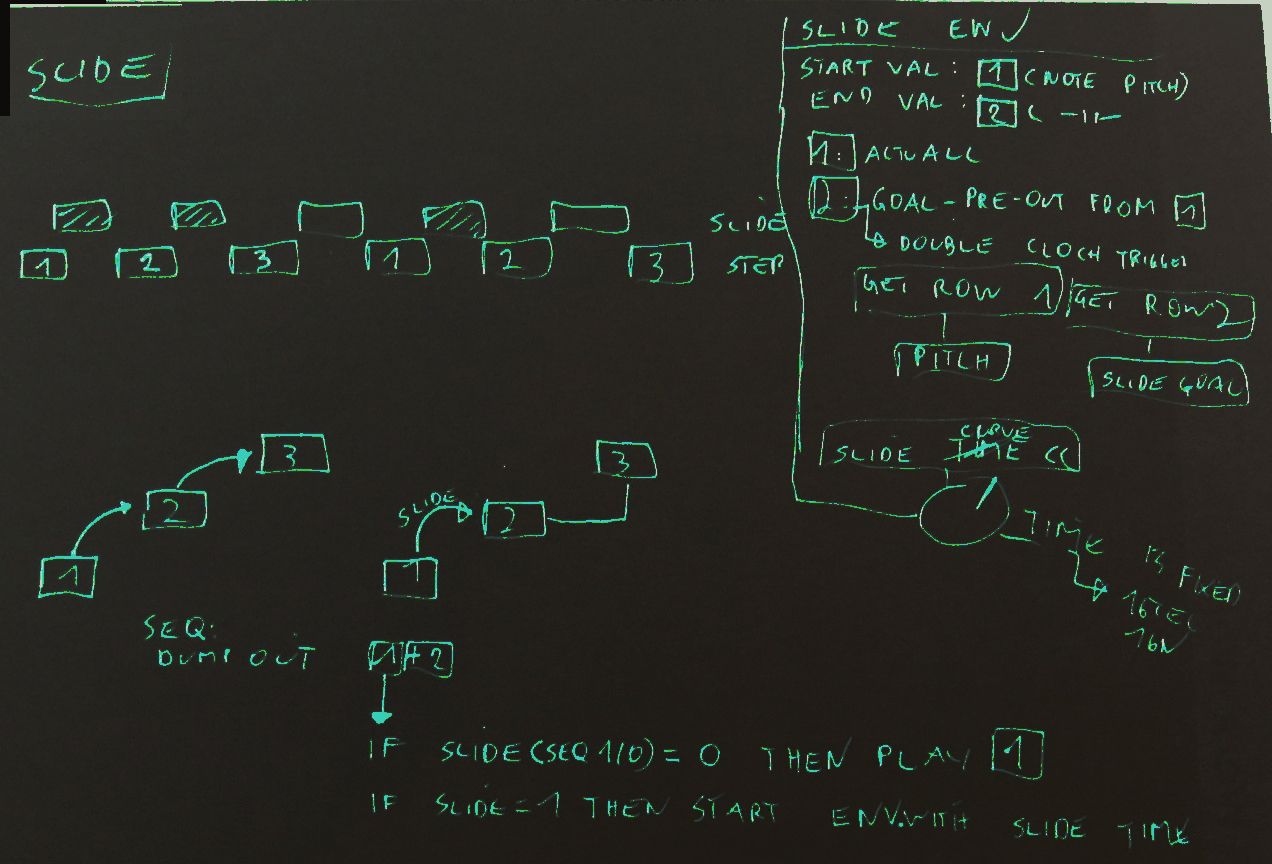 SLIDE
1 2 3 1 2 3
SLIDE
STEP
3
2
1
3
SLIDE
2
1
SEQ:
DUMP OUT 1 + 2
IF SLIDE(SEQ 1/0) = 0 THEN PLAY 1
IF SLIDE=1 THEN START ENV.WITH SLIDE TIME
SLIDE ENV
START VAL : 1 (NOTE PITCH)
END VAL : 2 ( -11-
1: ACTUALL
2: GOAL-PRE-OUT FROM 1
DOUBLE CLOCH TRIGGER
GET ROW 1 GET ROW 2
PITCH
SLIDE GOAL
CURVE
SLIDE TIME CC
TIME IS FIXED
16N